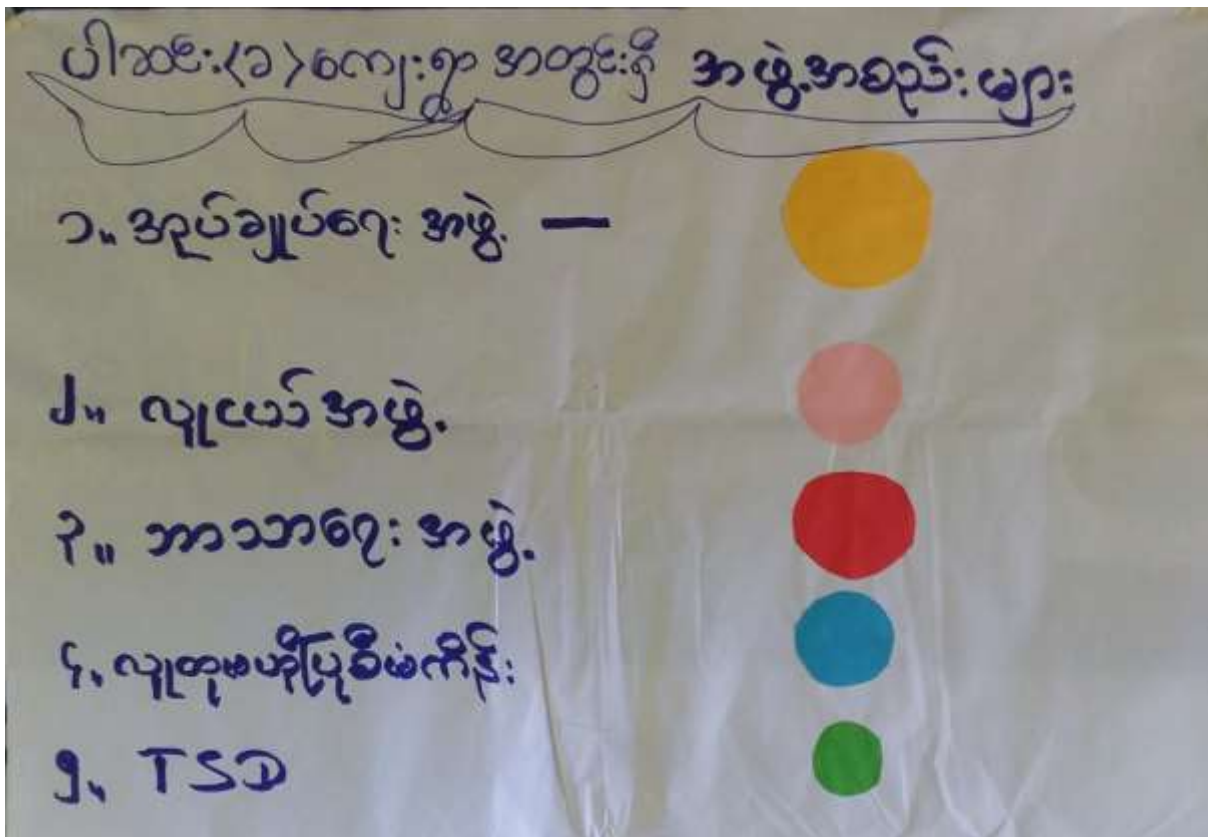 ပါဆင်း<ခ>ကျေးရွာ အတွင်းရှိ အဖွဲ့အစည်းများ
၁။ အုပ်ချုပ်ရေး အဖွဲ့ —
၂။ လူငယ် အဖွဲ့
၃။ ဘာသာရေး အဖွဲ့
၄။ လူထုဗဟိုပြုစီမံကိန်း
၅။ TSD